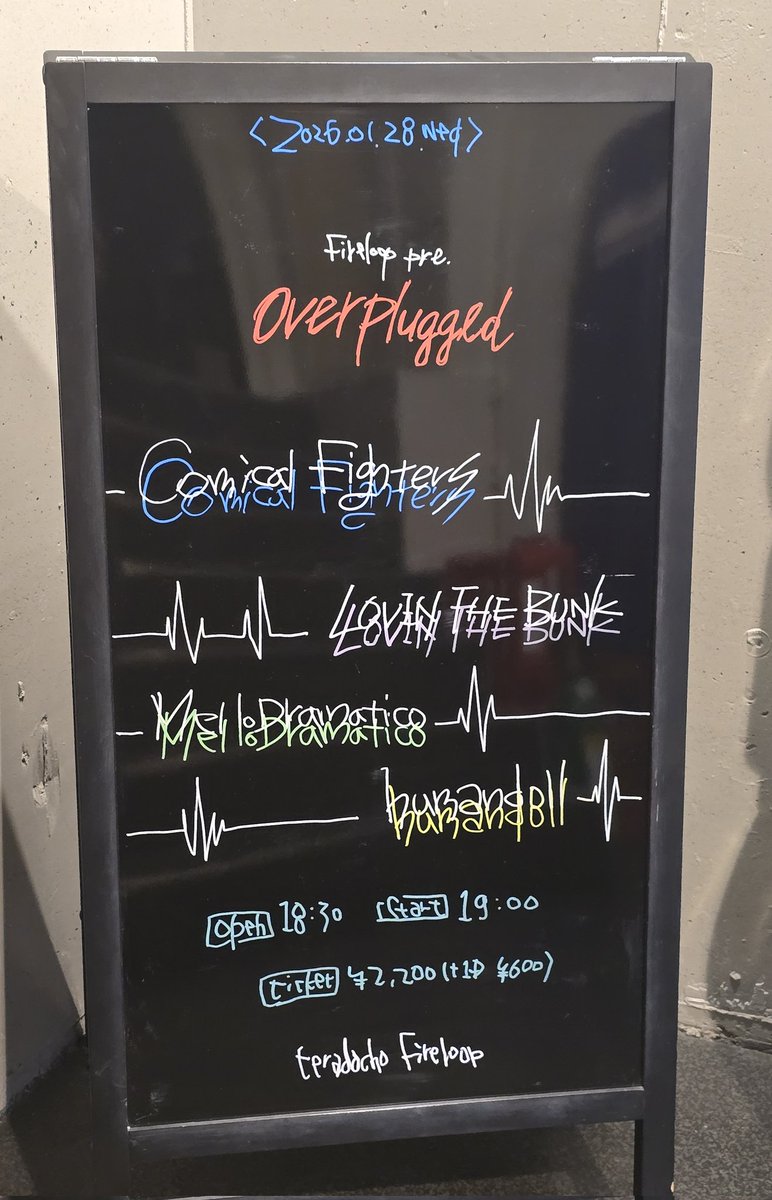 <2026.01.28.Wed>
Fireloop pre.
Overplugged
Comical Fighters
LOVIN THE BUNK
MelloDramatico
humandoll
open 18:30 start 19:00
ticket ¥2,200(+1D ¥600)
teradacho Fireloop